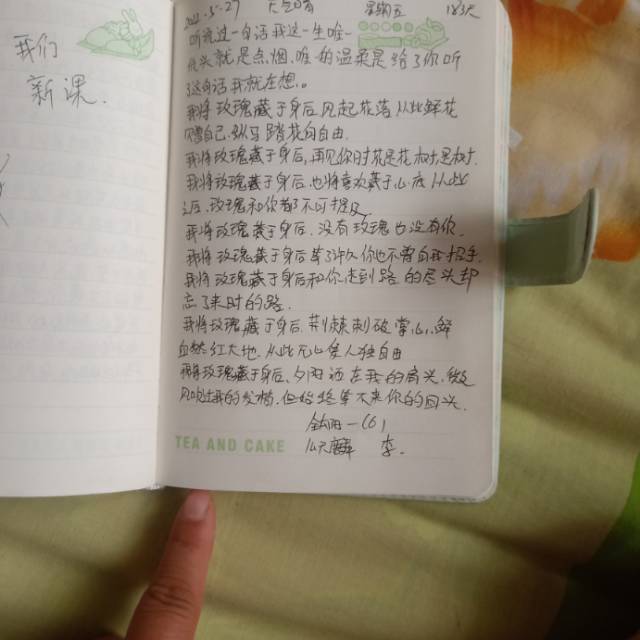 我们
新课.
2022.5.27 天气晴 星期五 183天
听说过一句话我这一生唯一
低头就是点烟、唯一的温柔是给了你听
到这句话我就在想。
我将玫瑰藏于身后,风起花落从此鲜花
赠自己,纵马踏花向自由.
我将玫瑰藏于身后,再见你时花是花树是树.
我将玫瑰藏于身后,也将喜欢藏于心底从此
之后,玫瑰和你都不可提及
我将玫瑰藏于身后,没有玫瑰也没有你.
我将玫瑰藏于身后等了许久你也不曾向我招手.
我将玫瑰藏于身后和你走到路的尽头却
忘了来时的路.
我将玫瑰藏于身后,荆棘刺破掌心,鲜
血然红大地,从此无心爱人独自由
我将玫瑰藏于身后、夕阳洒在我的肩头,微
风吹过我的发梢,但始终等不来你的回头.
李.
TEA AND CAKE